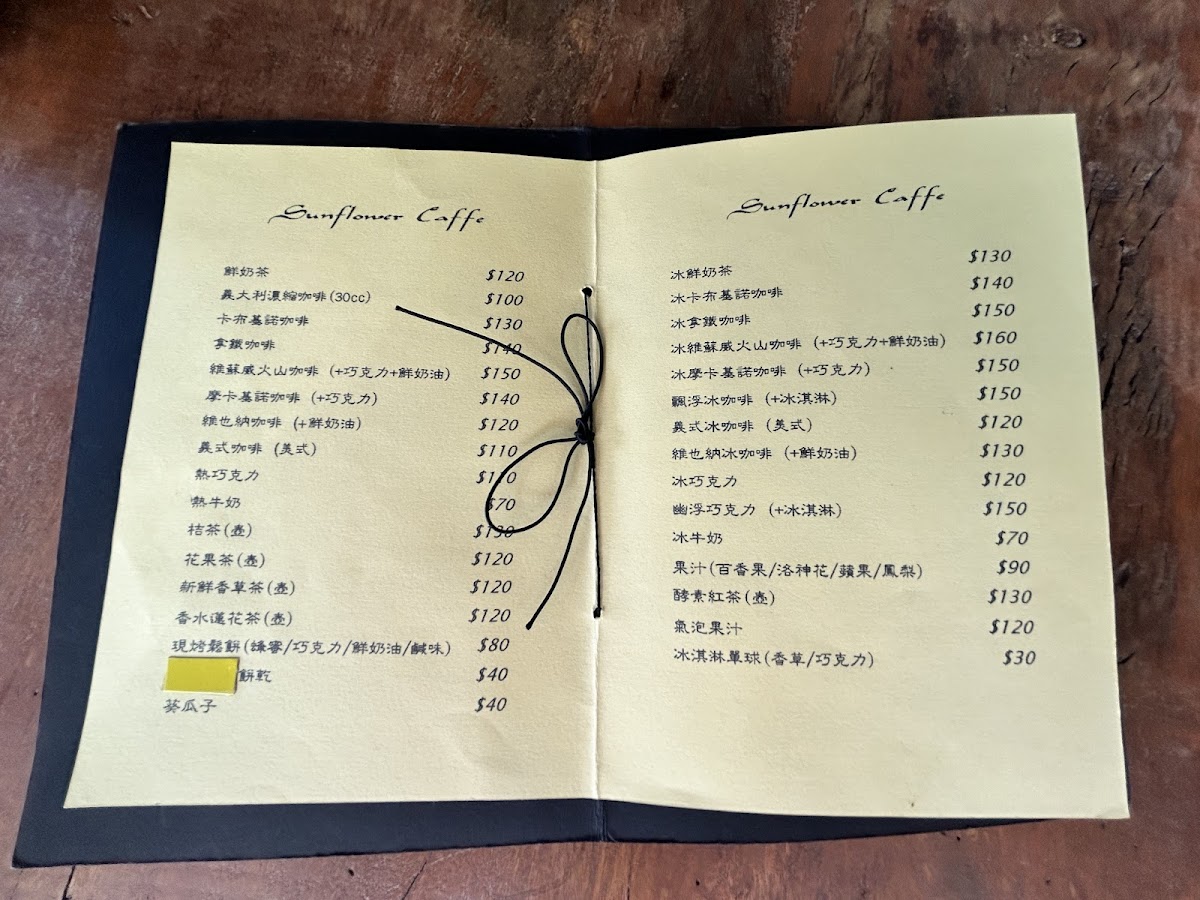 Sunflower Caffe
鮮奶茶 $120
義大利濃縮咖啡(30cc) $100
卡布基諾咖啡 $130
拿鐵咖啡 $140
維蘇威火山咖啡 (+巧克力+鮮奶油) $150
摩卡基諾咖啡 (+巧克力) $140
維也納咖啡 (+鮮奶油) $120
義式咖啡 (美式) $110
熱巧克力 $110
熱牛奶 $70
桔茶(壺) $130
花果茶(壺) $120
新鮮香草茶(壺) $120
香水蓮花茶(壺) $120
現烤鬆餅(蜂蜜/巧克力/鮮奶油/鹹味) $80
餅乾 $40
葵瓜子 $40
Sunflower Caffe
冰鮮奶茶 $130
冰卡布基諾咖啡 $140
冰拿鐵咖啡 $150
冰維蘇威火山咖啡 (+巧克力+鮮奶油) $160
冰摩卡基諾咖啡 (+巧克力) $150
飄浮冰咖啡 (+冰淇淋) $150
義式冰咖啡 (美式) $120
維也納冰咖啡 (+鮮奶油) $130
冰巧克力 $120
幽浮巧克力 (+冰淇淋) $150
冰牛奶 $70
果汁(百香果/洛神花/蘋果/鳳梨) $90
酵素紅茶(壺) $130
氣泡果汁 $120
冰淇淋單球(香草/巧克力) $30